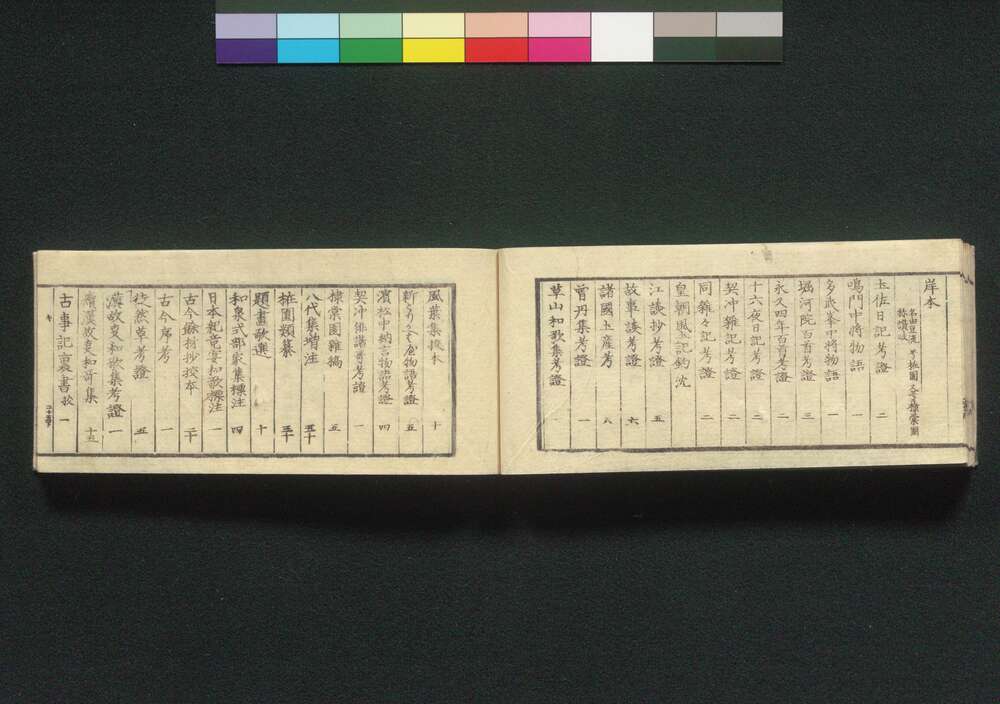 岸本
名由豆流 号𣗄園 又号棣棠園
称讃岐
土佐日記考證 二
鳴門中将物語 一
多武峯中将物語 一
堀河院百首考證 三
永久四年百首考證 二
十六夜日記考證 二
契冲雜記考證 二
同雜々記考證 二
皇朝風記鈎沈
江談抄考證 五
故事談考證 六
諸國土産考 八
曽丹集考證 一
草山和歌集考證
風葉集挍本 十
物語考證 五
濱松中納言物語考證 四
契沖俳諧哥考證 一
棣棠園雜稿 五
八代集増注 五十
園類纂 三十
題畫歌選 十
和泉式部家集標注 四
日本紀竟宴和歌標注 一
古今餘材抄挍本 二十
古今序考 一
徒然草考證 五
漢故夏和歌集考證 一
漢故夏和哥集 十五
古事記裏書攷 一
キ